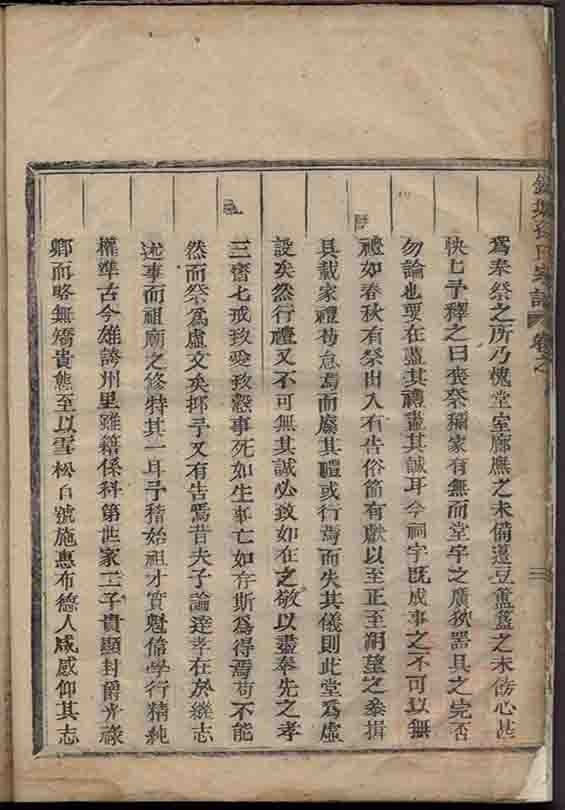 爲奉祭之所乃愧堂室廊廡之未備籩豆簠簋之未飭心甚
怏怏予釋之曰喪祭稱家有無而堂宇之廣狹器具之完否
勿論也要在盡其禮盡其誠耳今祠宇既成事之不可以無
禮如春秋有祭出入有告俗節有獻以至正至朔望之參揖
具載家禮苟怠焉而廢其禮或行焉而失其儀則此堂爲虛
設矣然行禮又不可無其誠必致如在之敬以盡奉先之孝
三齋七戒致愛致慤事死如生事亡如存斯爲得焉苟不能
然而祭爲虛文矣抑予又有告焉昔夫子論達孝在於繼志
述事而祖廟之修特其一耳予稽始祖才質魁偉學行精純
權準古今雄誇州里雖籍係科第世家二子貴顯封爵光祿
卿而略無矯貴態至以雪松自號施惠布德人咸感仰其志
氏宗譜
卷之
三